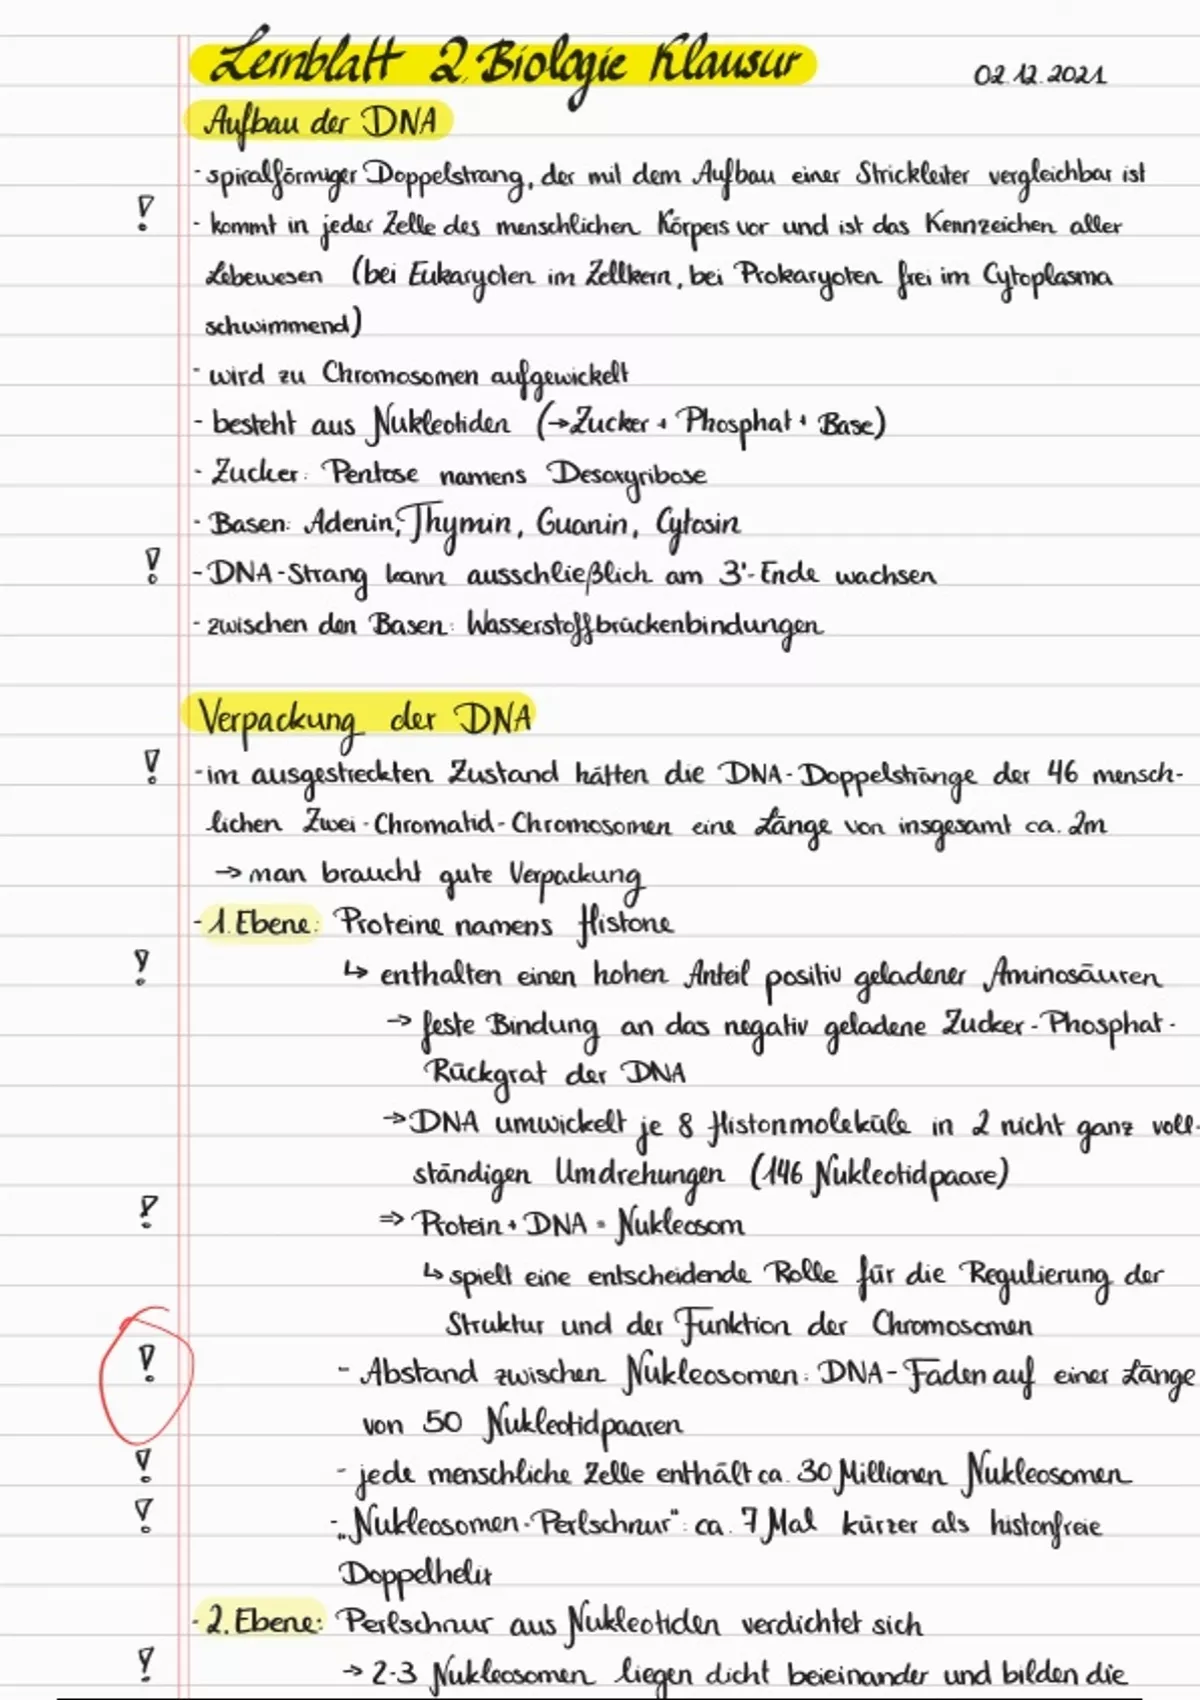 Lernblatt 2. Biologie Klausur
02.12.2021
Aufbau der DNA
- spiralförmiger Doppelstrang, der mit dem Aufbau einer Strickleiter vergleichbar ist
! - kommt in jeder Zelle des menschlichen Körpers vor und ist das Kennzeichen aller
Lebewesen (bei Eukaryoten im Zellkern, bei Prokaryoten frei im Cytoplasma
schwimmend)
- wird zu Chromosomen aufgewickelt
- besteht aus Nukleotiden (→Zucker + Phosphat + Base)
- Zucker: Pentose namens Desoxyribose
- Basen: Adenin, Thymin, Guanin, Cytosin
! - DNA-Strang kann ausschließlich am 3'-Ende wachsen
- zwischen den Basen: Wasserstoffbrückenbindungen
Verpackung der DNA
! - im ausgestreckten Zustand hätten die DNA-Doppelstränge der 46 mensch-
lichen Zwei-Chromatid-Chromosomen eine Länge von insgesamt ca. 2m
→ man braucht gute Verpackung
- 1. Ebene: Proteine namens Histone
! ↳ enthalten einen hohen Anteil positiv geladener Aminosäuren
→ feste Bindung an das negativ geladene Zucker-Phosphat-
Rückgrat der DNA
→ DNA umwickelt je 8 Histonmoleküle in 2 nicht ganz voll-
ständigen Umdrehungen (146 Nukleotidpaare)
! ⇒ Protein + DNA = Nukleosom
↳ spielt eine entscheidende Rolle für die Regulierung der
Struktur und der Funktion der Chromosomen
! - Abstand zwischen Nukleosomen: DNA-Faden auf einer Länge
von 50 Nukleotidpaaren
! - jede menschliche Zelle enthält ca. 30 Millionen Nukleosomen
! - „Nukleosomen-Perlschnur": ca. 7 Mal kürzer als histonfreie
Doppelhelix
- 2. Ebene: Perlschnur aus Nukleotiden verdichtet sich
! → 2-3 Nukleosomen liegen dicht beieinander und bilden die